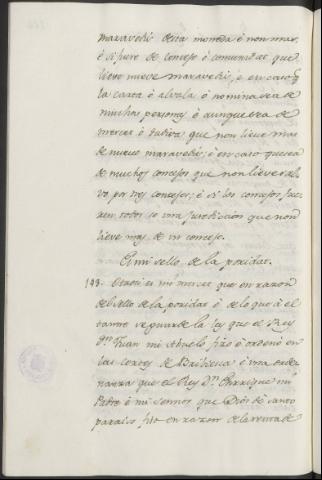 maravedis desta moneda è non mas,
è si fuere de concejo ò comunidad, que
lieve nueve maravedis, è en caso q.
la carta ò alvala ò nomina sea de
muchas personas è aunque sea de
merced ò dadiva, que non lieve mas
de nueve maravedis; è en caso que sea
de muchos concejos que non lieve sal-
vo por tres concejos; è si los concejos fue-
ren todos so una jurediccion que non
lieve mas de un concejo.
El mi sello de la poridad.
149. Otrosi es mi merced que en razon
del sello de la poridad è de lo que à él
tanne se guarde la ley que el Rey
Dn. Juan mi abuelo fizo è ordenó en
las cortes de Bribiesca è una orde-
nanza que el Rey Dn. Enrrique mi
Padre è mi Sennor que Dios dé santo
paraiso, fizo en razon de la renta de